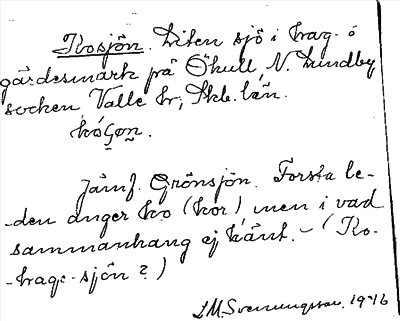 Kosjön. Liten sjö i hag- o
gärdesmark på Ökull, N. Lundby
socken Valle hr, Skb. län.
kóʃon.
Jämf. Grönsjön. Första le-
-den anger ko (kor), men i vad
sammanhang ej känt. – (Ko-
-hags-sjön?)
J.M. Svenungsson. 1946